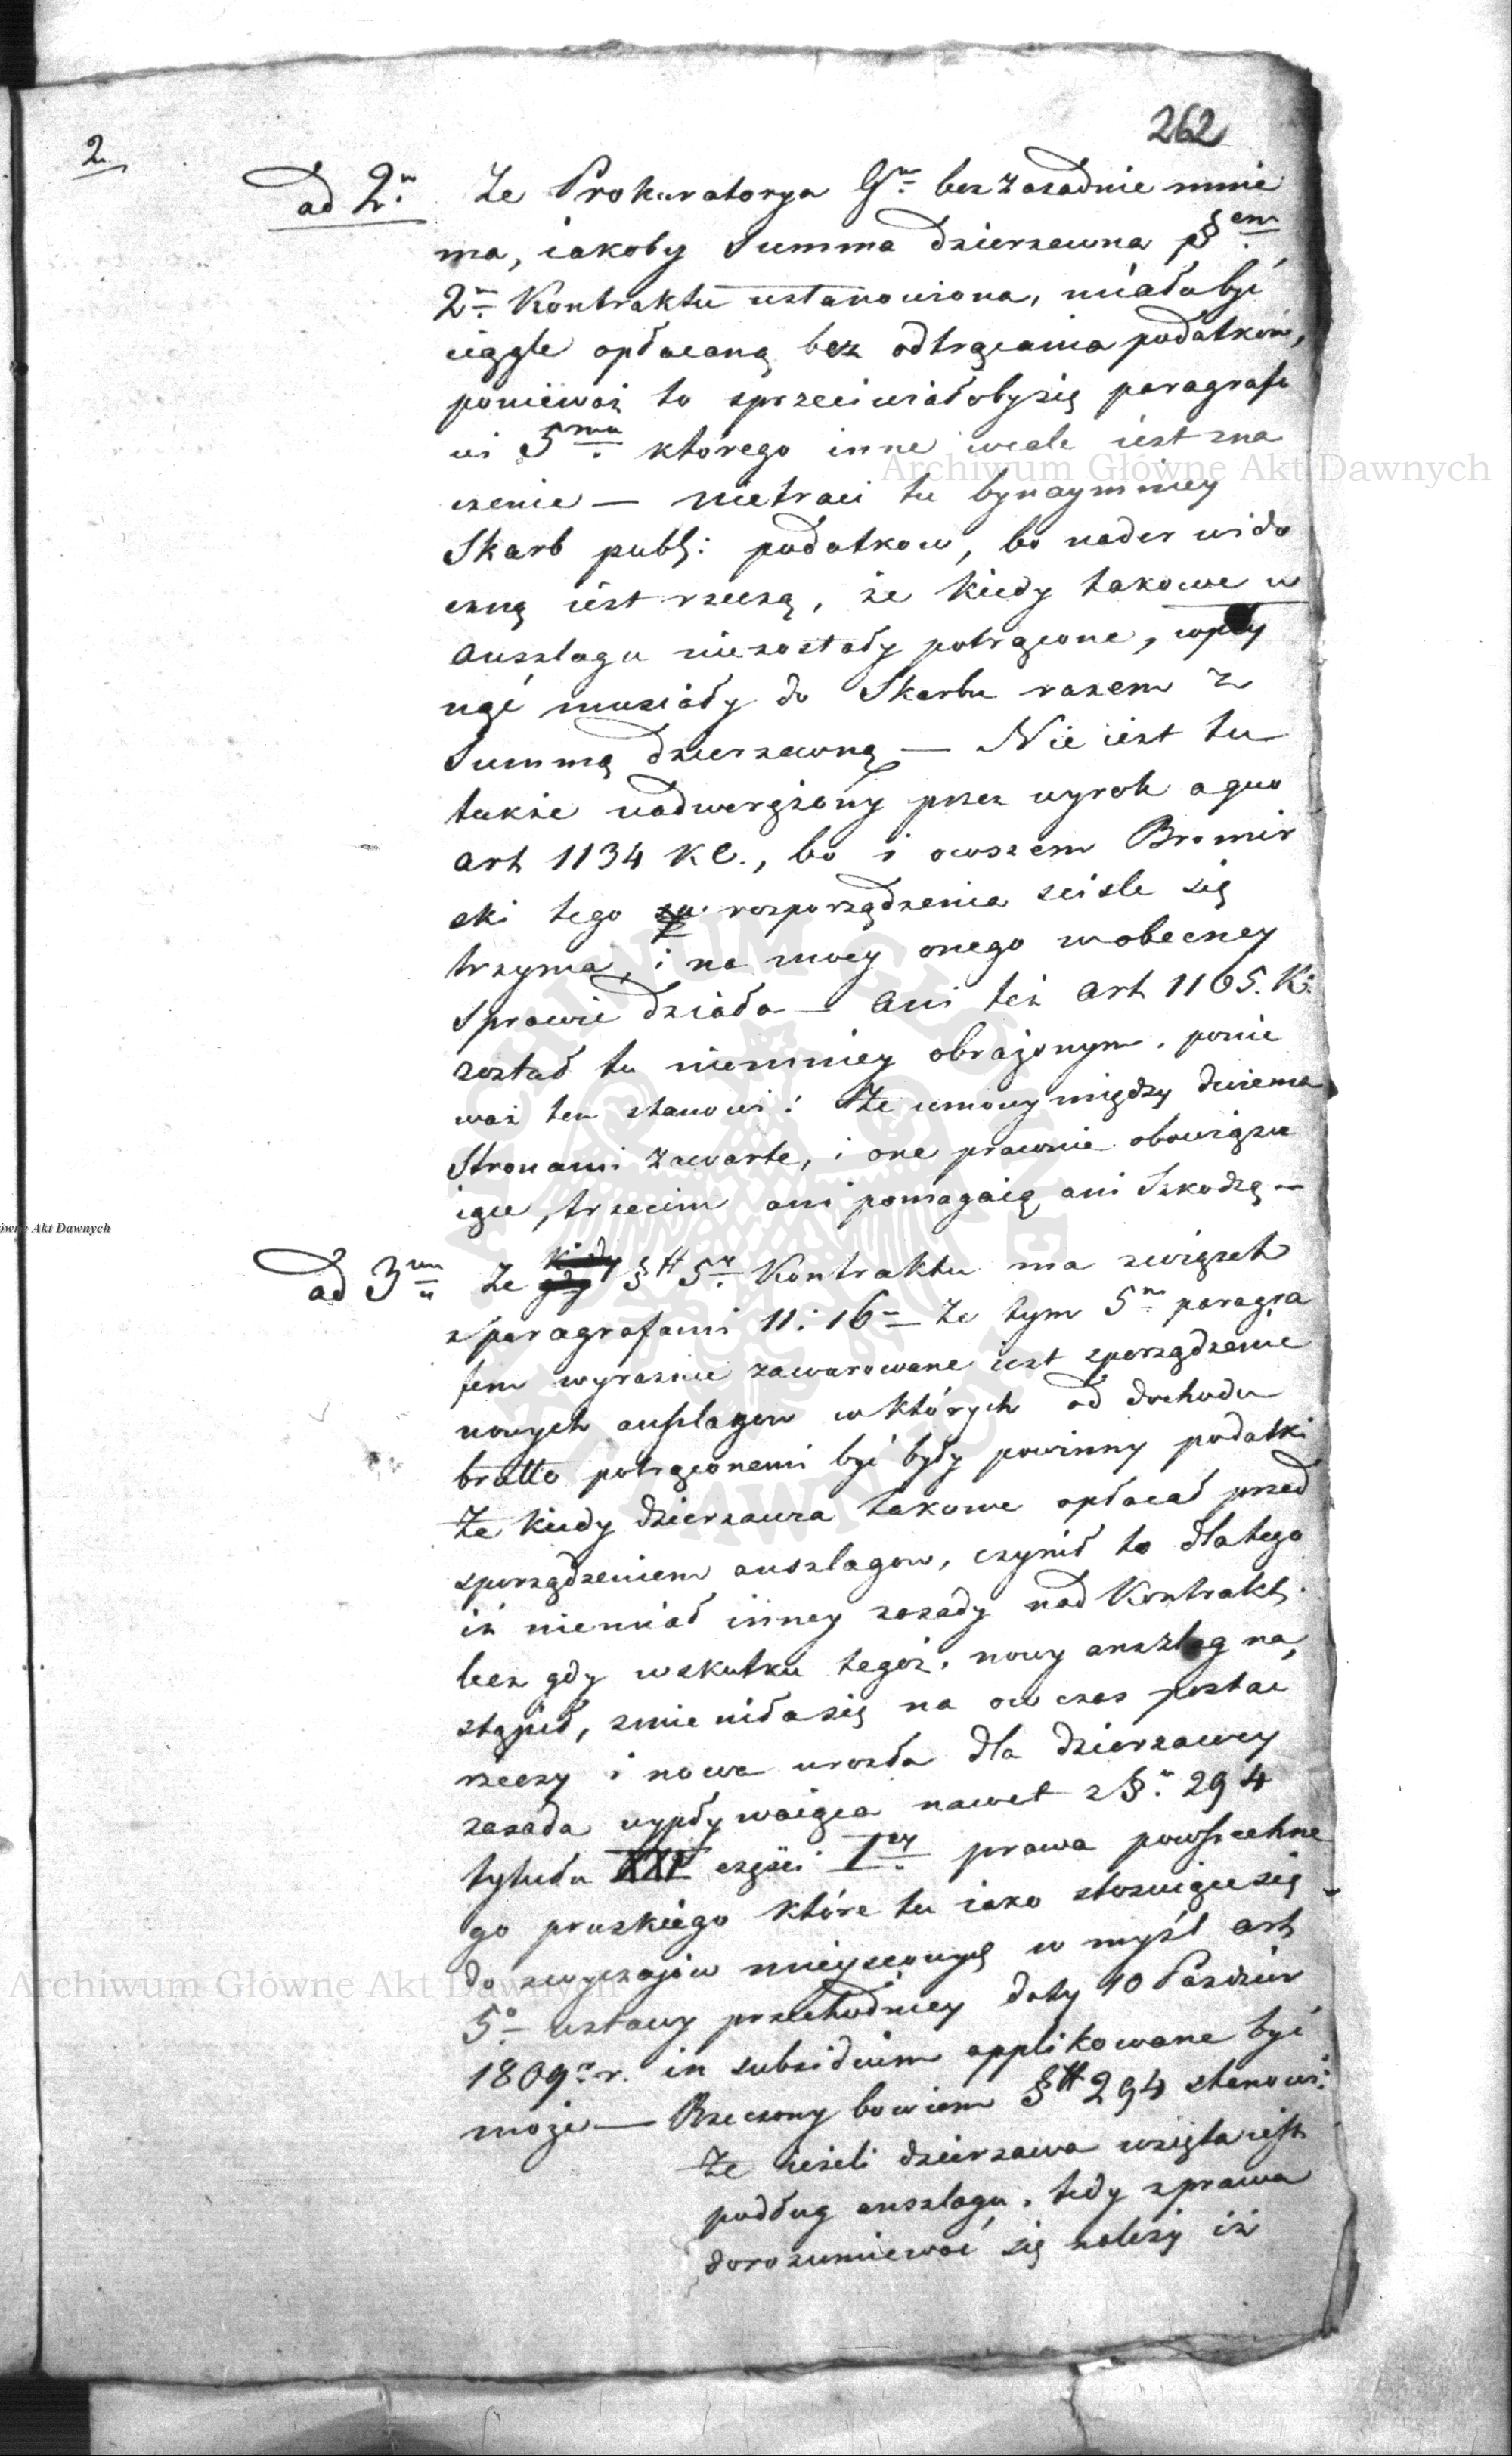 262
2.
ad 2m Że Prokuratorya Gn. bezzasadnie mnie
ma, iakoby Summa dzierzawna §em
2m Kontraktu ustanowiona, miała być
ciągle opłacaną bez odtrącania podatkow,
poniewaz to sprzeciwiałobysię paragrafo
wi 5mu ktorego inne wcale iest zna
czenie — nietraci tu bynaymniey
Skarb publ: podatkow, bo nader wido
czną iest rzeczą, że kiedy takowe w
Anszlagu niezostały potrącone, wpły
nąć musiały do Skarbu razem z
Summą dzierzawną — Nie iest tu
także nadwerężony przez wyrok a quo
art 1134 KC., bo i owszem Bromir
ski tego rozporządzenia scisle się
trzyma, i na mocy onego w obecney
Sprawie działa — Ani też art 1165. K:
został tu niemniey obrażonym, ponie
waż ten stanowi: Że umowy między dwiema
Stronami zawarte, i one prawnie obowiązu
iące, trzecim ani pomagaią ani Szkodzą —
ad 3um Że §ff 5y Kontraktu ma związek
z paragrafami 11 i 16 — Że tym 5m paragra
fem wyraznie zawarowane iest sporządzenie
nowych anszlagow w których od dochodu
brutto potrąconemi być były powinny podatki
Że kiedy dzierzawca takowe opłacał przed
sporządzeniem anszlagow, czynił to dlatego
iż niemiał inney zasady nad Kontrakt,
lecz gdy wskutku tegoż, nowy anszlag na
stąpił, zmieniłasię na ow czas postac
rzeczy i nowa urosła dla dzierzawcy
zasada wypływaiąca nawet z §u 294
tytułu XXI części Iey prawa powszechne
go pruskiego które tu iako stosuiące się
do zwyczajów mieyscowych w myśl art
5o ustawy przechodniey daty 10 Pazdzier
1809o r. in subsidium applikowane być
może — Rzeczony bowiem §ff 294 stanowi:
Że ieżeli dzierzawa wzięta iest
podług anszlagu, tedy z prawa
dorozumiewać się należy iż
Archiwum Główne Akt Dawnych
Archiwum Główne Akt Dawnych
ówne Akt Dawnych
ARCHIWUM GŁÓWNE AKT DAWNYCH